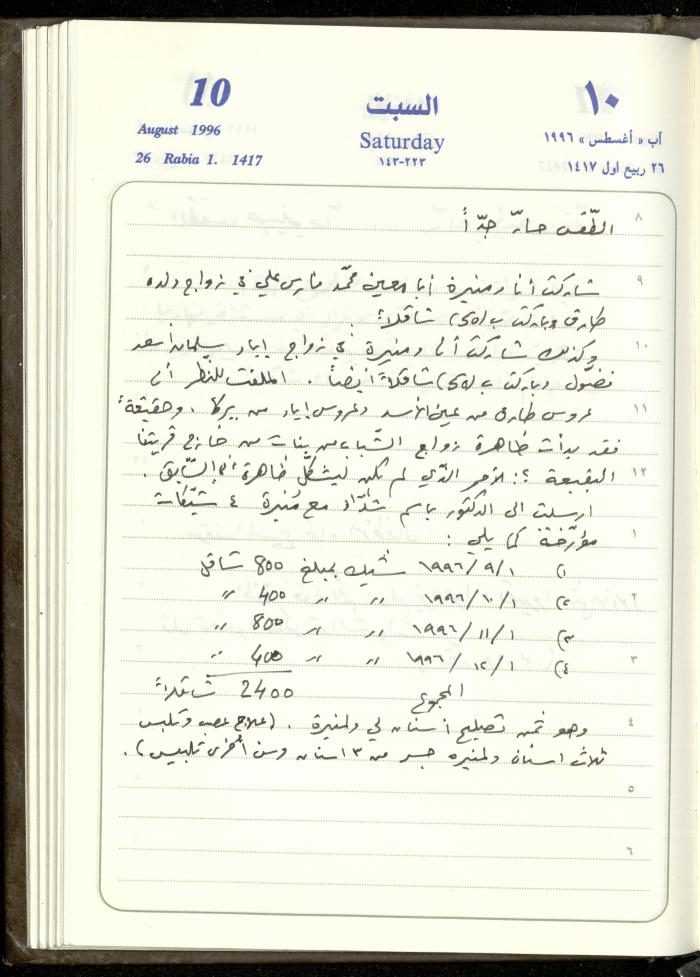 10
السبت
١٠
August 1996
Saturday
آب « أغسطس » ١٩٩٦
26 Rabia 1. 1417
١٤٣-٢٢٣
٢٦ ربيع اول ١٤١٧
٨
الطّقس حارّ جدّاً
٩
شاركت أنا ومنيرة أبا معين محمّد فارس علي في زواج ولده
طارق وباركت ب (٥٧) شاقلاً.
١٠
وكذلك شاركت أنا ومنيرة في زواج إياد سلمان اسعد
فضّول وباركت ب (٥٧) شاقلاً أيضاً. الملفت للنّظر أن
١١
عروس طارق من عين الأسد وعروس إياد من يركا، وحقيقةً
فقد بدأت ظاهرة زواج الشّباب من بنات من خارج قريتنا
١٢
البقيعة ؟! الأمر الّذي لم يكن ليشكّل ظاهرة في السّابق.
ارسلت الى الدكتور باسم شدّاد مع منيرة ٤ شيكات
١
مؤرّخة كما يلي :
١) ١٩٩٦/٩/١ شيك بمبلغ 800 شاقل
٢
٢) ١٩٩٦/١٠/١ " " 400 "
٣) ١٩٩٦/١١/١ " " 800 "
٣
٤) ١٩٩٦/١٢/١ " " 400 "
المجموع 2400 شاقلاً
٤
وهو ثمن تصليح أسنان لي ولمنيرة. (علاج عصب وتلبيس
ثلاث اسنان ولمنيره جسر من ٣ اسنان وسن أخرى تلبيس).
٥
٦